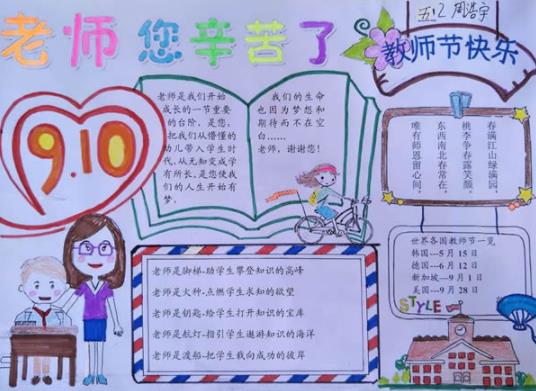 老师您辛苦了
五.2 周浩宇
教师节快乐
9.10
老师是我们开始
成长的一节重要
的台阶，是您，
把我们从懵懂的
幼儿带入学生时
代，从无知变成学
有所长，是您使我
们的人生开始有
梦。
我们的生命
也因为梦想和
期待而不在空
白……
老师，谢谢您！
春满江山绿满园，
桃李争春露笑颜。
东西南北春常在，
唯有师恩留心间。
世界各国教师节一览
韩国---5 月 15 日
德国---6 月 12 日
新加坡---9 月 1 日
美国---9 月 28 日
STYLE
老师是脚梯-助学生攀登知识的高峰
老师是火种-点燃学生求知的欲望
老师是钥匙-给学生打开知识的宝库
老师是航灯-指引学生遨游知识的海洋
老师是渡船-把学生载向成功的彼岸